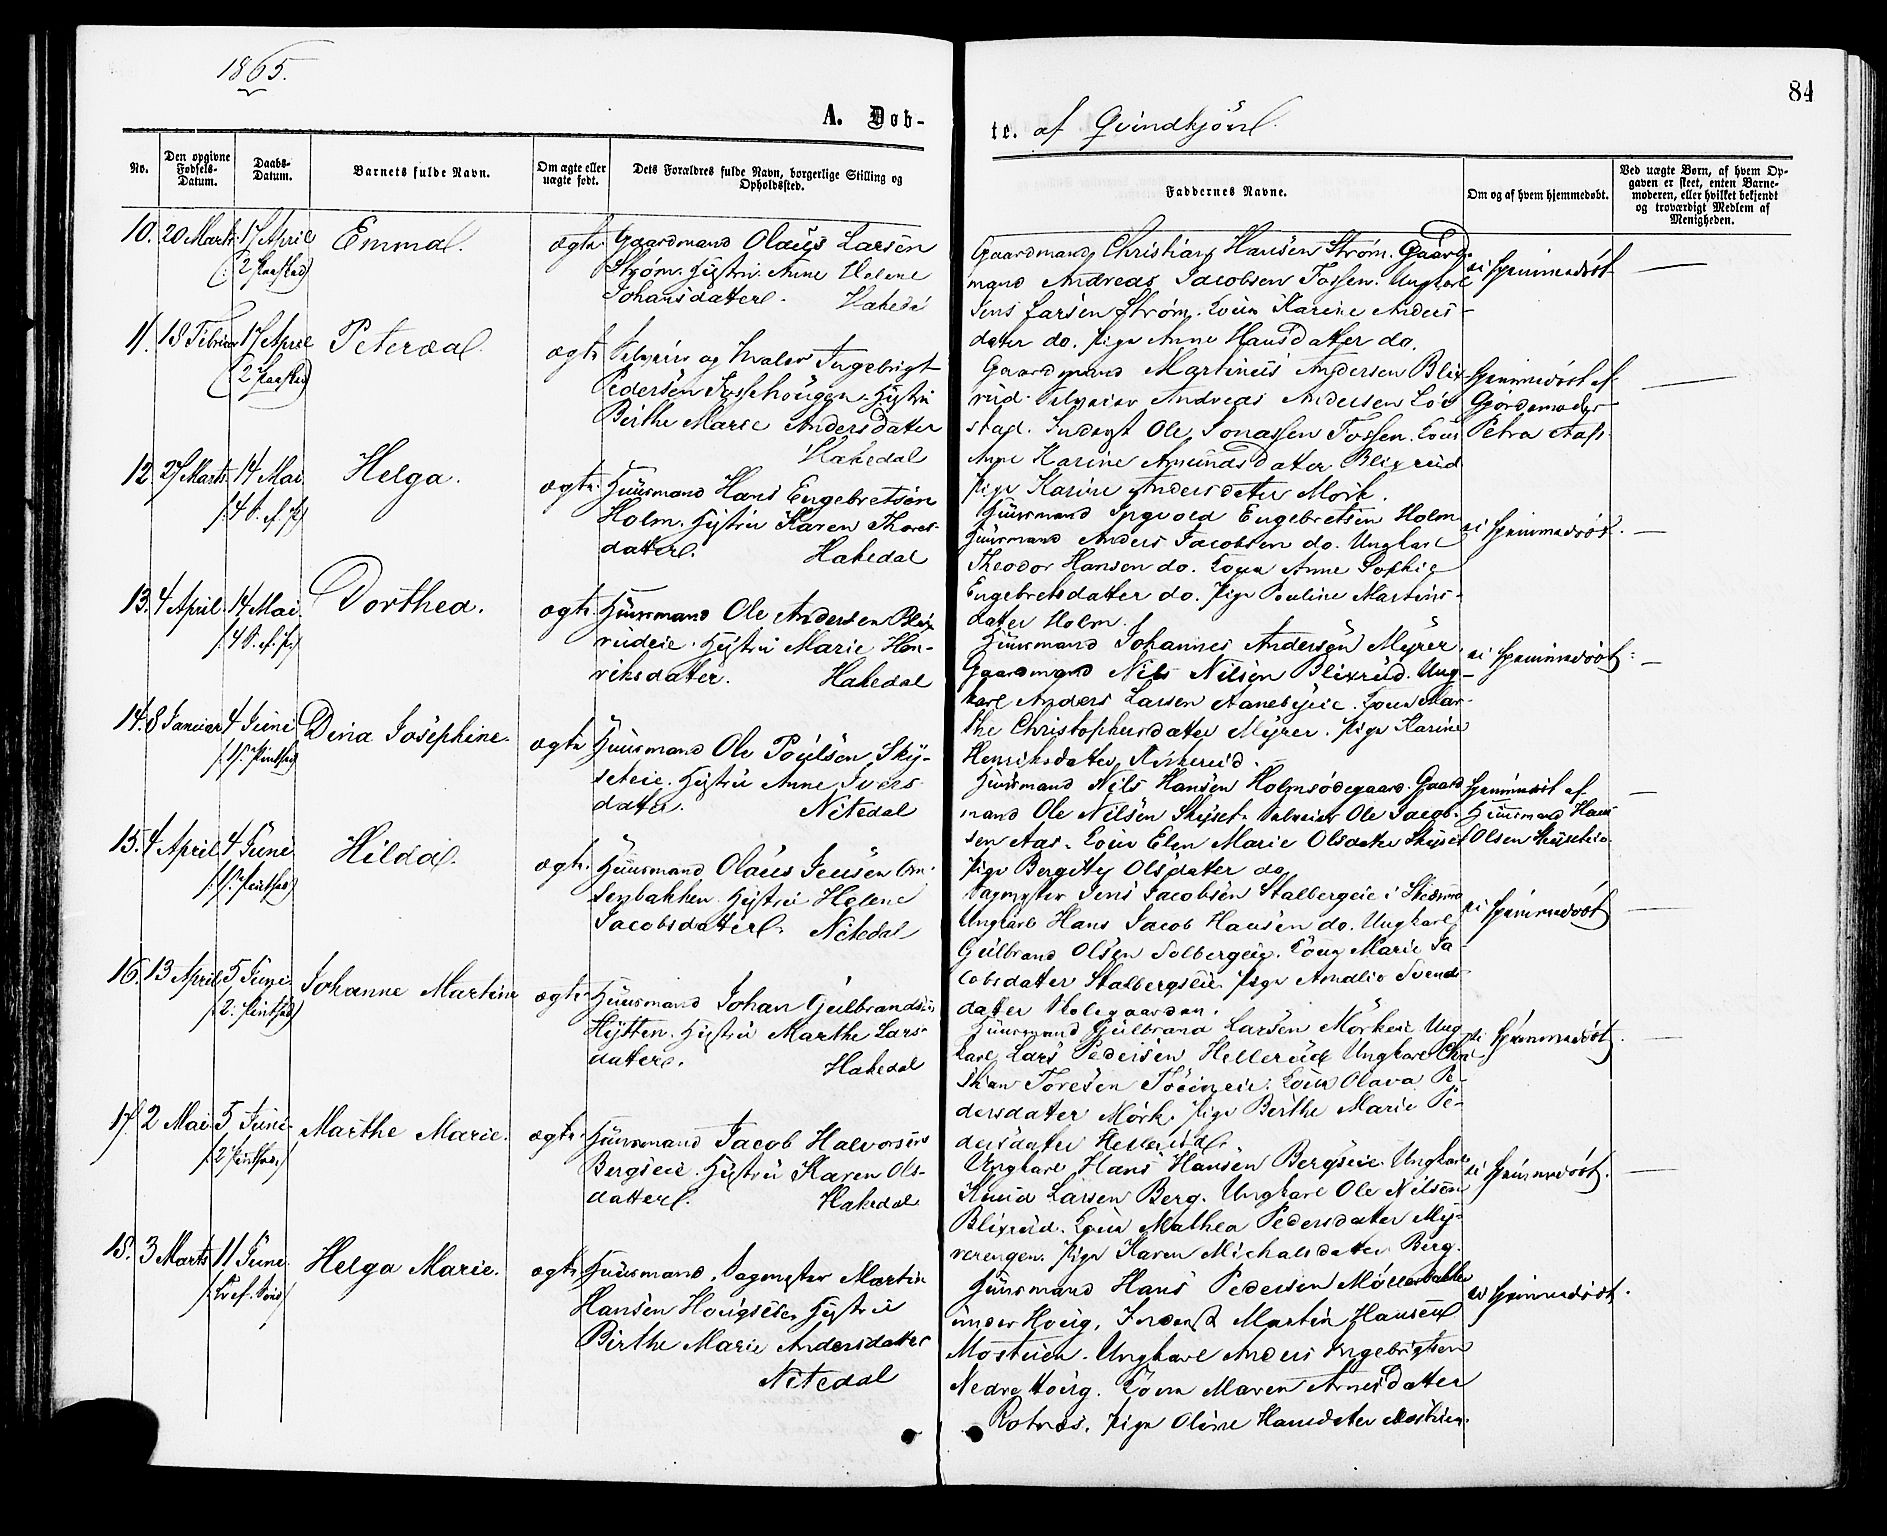 1865.
84
A. Døb-
te. af Qvindkjön
No.
Den opgivne Fødsels-Datum.
Daabs-Datum.
Barnets fulde Navn.
Om ægte eller uægte født.
Dets Forældres fulde Navn, borgerlige Stilling og Opholdssted.
Faddernes Navne.
Om og af hvem hjemmedøbt.
Ved uægte Børn, af hvem Opgaven er skeet, enten Barnemoderen, eller hvilket bekjendt og troværdigt Medlem af Menigheden.
10. 20 Marts 17 April Emma. ægte
(: 2 Paasked)
Gaardmand Olaus Larsen
Strøm. Hystru Anne Helene
Johansdatter. Hakedal
Gaardmand Christian Hansen Strøm. Gaard-
mand Andreas Jacobsen Fossen. Ungkarl
Jens Larsen Strøm. Kone Karine Anders-
dater do. Pige Anne Hansdatter do.
ei hjemmedøbt
11. 18 Februar 17 April Peterda. ægte
(2 Paasked)
Selveier og Ingebrigt
Pedersen Hystru
Birthe Marie Andersdatter
Hakedal
Gaardmand Martinus Andersen Blix-
rud. Selveier Andreas Andersen
stad. Inderst Ole Jonassen Fossen. Kone
Anne Karine Amundsdatter Blixrud
Pige Karine Andersdater Mork.
Hjemmedøbt af
Gjordemoder
Petra Aas
12. 27 Marts 14 Mai Helga. ægte
(: 4 S. ef. P.)
Huusmand Hans Engebretsen
Holm. Hystru Karen Thores-
datter. Hakedal
Huusmand Ingvold Engebretsen Holm
Huusmand Anders Jacobsen do. Ungkarl
Theodor Hansen do. Kone Anne Sophie
Engebretsdatter do. Pige Pauline Martins-
dater Holm.
ei hjemmedøbt.
13. 4 April 14 Mai Dorthea. ægte
(: 4 S. ef. P.)
Huusmand Ole Andersen Blix
rudeie. Hystru Marie Hen-
riksdater. Hakedal
Huusmand Johannes Andersen Myrer.
Gaardmand Nils Nilsen Blixrud. Ung-
karl Anders Larsen Aanebyeie. Kone Mar-
the Christophersdater Myrer. Pige Karine
Henriksdater
ei hjemmedøbt.
14. 8 Januar 4 Juni Dina Josephine. ægte
(: 1. Pintsed)
Huusmand Ole Poulsen Sky-
seteie. Hystru Anne Ivers-
dater. Nitedal
Huusmand Nils Hansen Holmsødegaard. Gaard
mand Ole Nilsen Skyset. Selveier Ole Jacob-
sen Aas. Kone Elen Marie Olsdater Skyset
Pige Bergitty Olsdater do
hjemmedøbt af
Huusmand Hans
Olsen Skyseteie
15. 4 April 4 Juni Hilda. ægte
(: 1. Pintsed)
Huusmand Olaus Jensen
senbakken. Hystru Helene
Jacobsdatter. Nitedal
Sagmester Jens Jacobsen Stalbergeie i Skedsmo
Ungkarl Hans Jacob Hansen do. Ungkarl
Gulbrand Olsen Solbergeie. Kone Marie Ja-
cobsdatter Stalbergseie. Pige Amalie Svends-
datter
ei hjemmedøbt
16. 13 April 5 Juni Johanne Martine ægte
(: 2. Pintsed)
Huusmand Johan Gulbrandsen
Hytten. Hystru Marthe Lars-
datter. Hakedal
Huusmand Gulbrand Larsen Mørkeie. Ung
karl Lars Pedersen Hellerud Ungkarl Chri-
stian Toresen Kone Olava Pe-
dersdater Mørk. Pige Berthe Marie Pe-
dersdater Hellerud.
ei hjemmedøbt.
17. 2 Mai 5 Juni Marthe Marie. ægte
(: 2 Pintsed)
Huusmand Jacob Halvorsen
Bergseie. Hystru Karen Ols-
datter. Hakedal
Ungkarl Hans Hansen Bergseie. Ungkarl
Knud Larsen Berg. Ungkarl Ole Nilsen
Blixrud. Kone Mathea Pedersdater My-
rerengen. Pige Karen Michalsdatter Berg.
ei hjemmedøbt.
18. 3 Marts 11 Juni. Helga Marie. ægte
Huusmand, Sagmester Martin
Hansen Hougseie. Hystru
Birthe Marie Andersdatter
Nitedal
Huusmand Hans Pedersen Møllerbakke
under Houg. Inderst Martin Hansen
Mostuen. Ungkarl Anders Ingebrigtsen
Nedre Houg. Kone Maren Arnesdatter
Rotnes. Pige Oline Hansdater Mostuen.
ei hjemmedøbt.